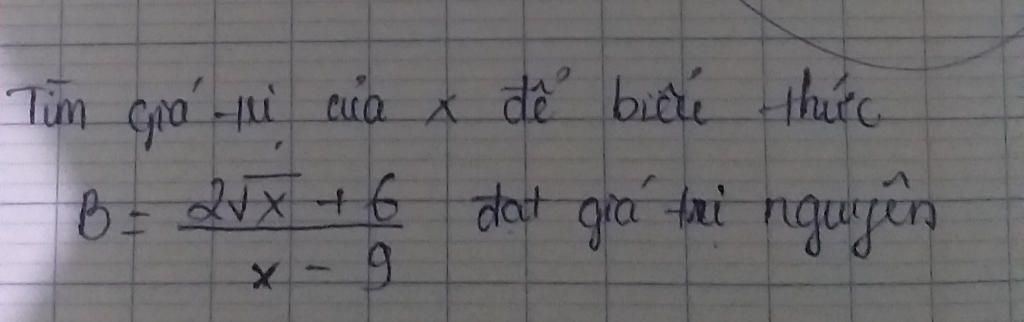 Tìm giá trị của x để biểu thức
B = \frac{2\sqrt{x} + 6}{x - 9} đạt giá trị nguyên